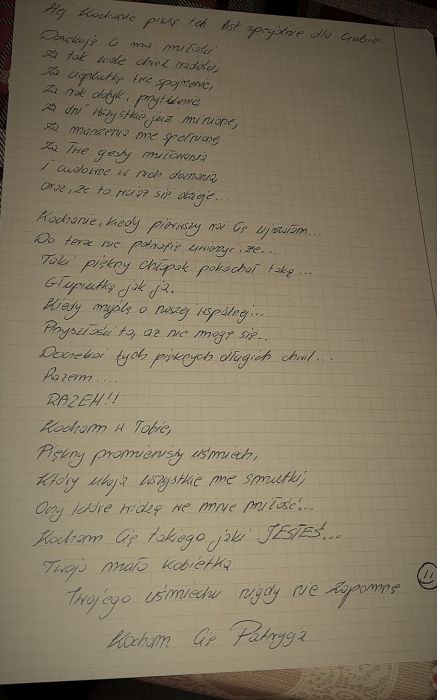 Hej Kochanie piszę ten list specjalnie dla Ciebie.
Dziękuję Ci ma miłości
Za tak wiele chwil radości,
Za cieplutkie twe spojrzenie,
Za rąk dotyk, przytulenie
Za dni wszystkie już minione,
Za marzenia me spełnione
Za Twe gesty miłowania
i cudowne w nich doznania
oraz, że to wciąż się dzieje...
Kochanie, kiedy pierwszy raz Cię ujrzałam...
Do teraz nie potrafię uwierzyć, że...
Taki piękny chłopak pokochał taką...
Głupiutką jak ja.
Kiedy myślę o naszej wspólnej...
Przyszłości to, aż nie mogę się..
Doczekać tych pięknych długich chwil...
Razem....
RAZEM!!
Kocham w Tobie,
Piękny promienisty uśmiech,
Który ukoja wszystkie me smutki,
Oczy które widzą we mnie miłość...
Kocham Cię takiego jaki JESTEŚ...
Twoja mała kobietka
Twojego uśmiechu nigdy nie zapomnę
11
Kocham Cię Patryga